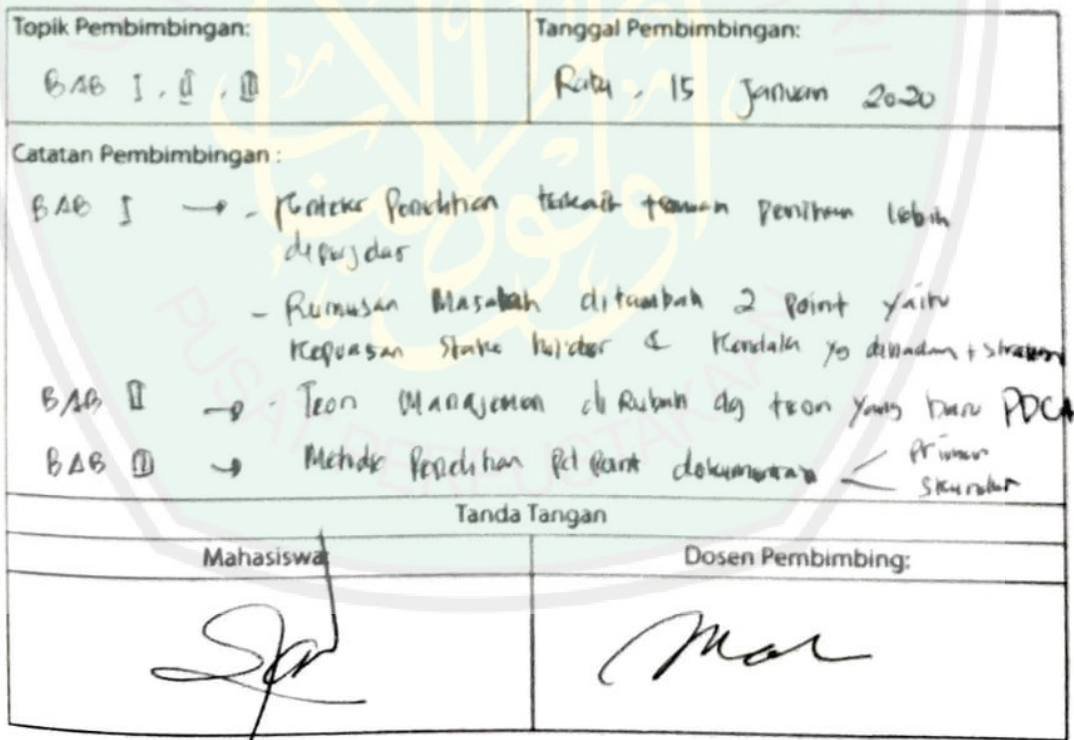 Topik Pembimbingan:
BAB I , II , III
Tanggal Pembimbingan:
Rabu , 15 Januari 2020
Catatan Pembimbingan :
BAB I → - Konteks Penelitian terkait temuan penelitian lebih
- Rumusan Masalah ditambah 2 Point yaitu
Kepuasan Stake holder & Kendala yg dihadapi +
BAB II → - Teori Manajemen di Rubah dg teori yang baru PDCA
BAB III → Metode Penelitian pd Point dokumentasi < Primer
Skunder
Tanda Tangan
Mahasiswa
Dosen Pembimbing:
PUSAT PERPUSTAKAAN